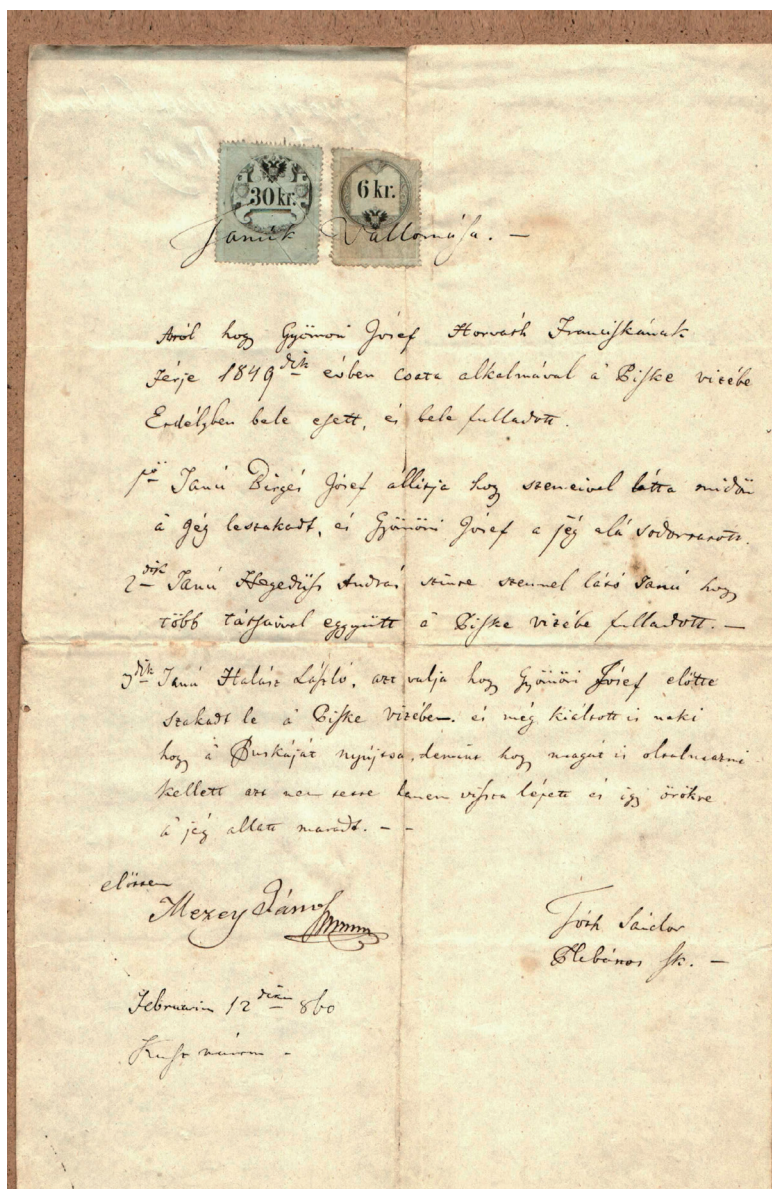 30 kr.
6 kr.
Tanúk Vallomása. —
Aról hogy Gyömöri Jósef Horváth Franciskának
Férje 1849dik évben csata alkalmával à Piske vizébe
Erdélyben bele esett, és bele fulladott.
1ső Tanú Jósef állitja hogy szemeivel látta midőn
à gég leszakadt, és Gyömöri Jósef a jég alá
2dik Tanú Hegedűss András szinte szemmel látó Tanú hogy
több társaival eggyütt à Piske vizébe fulladott. —
3dik Tanú Halász László, azt valja hogy Gyömöri Jósef előtte
szakadt le à Piske vizében. és még kiáltott is neki
hogy à Puskáját nyújtsa, hogy magát is oltalmazni
kellett azt nem tette hanem vissza lépett és igy örökre
à jég alatt maradt. — —
előttem
Mezey János
Tóth Sándor
Plebános sk. —
Februarius 12dikén 860